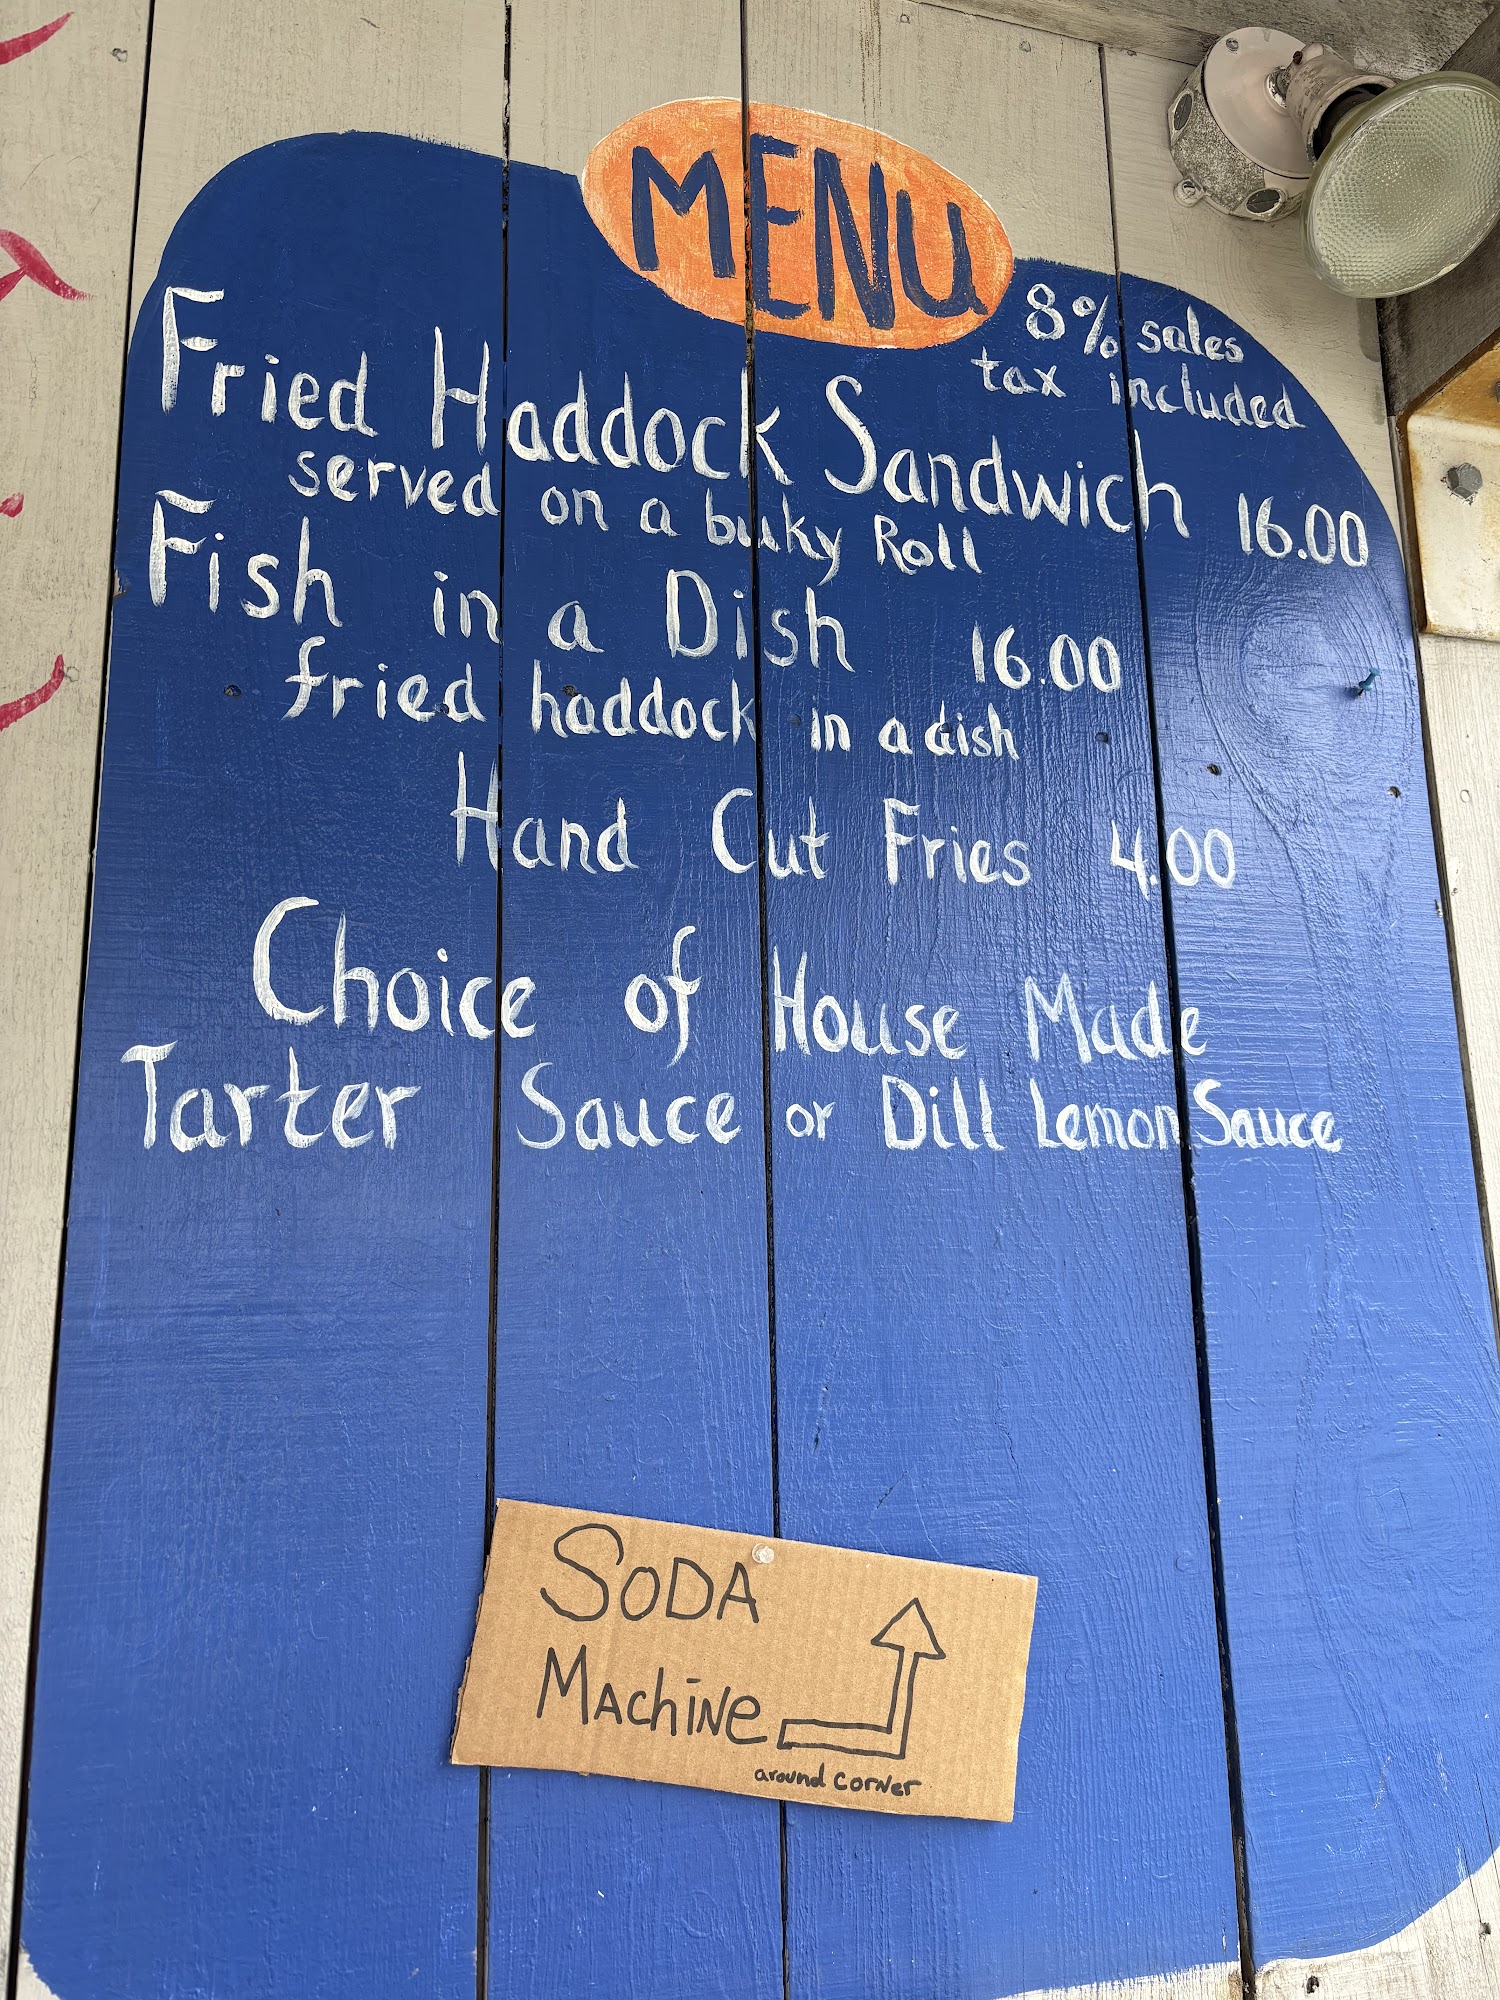 MENU
8% sales
tax included
Fried Haddock Sandwich 16.00
served on a bulky Roll
Fish in a Dish 16.00
fried haddock in a dish
Hand Cut Fries 4.00
Choice of House Made
Tarter Sauce or Dill Lemon Sauce
SODA
MAChiNe
around corner